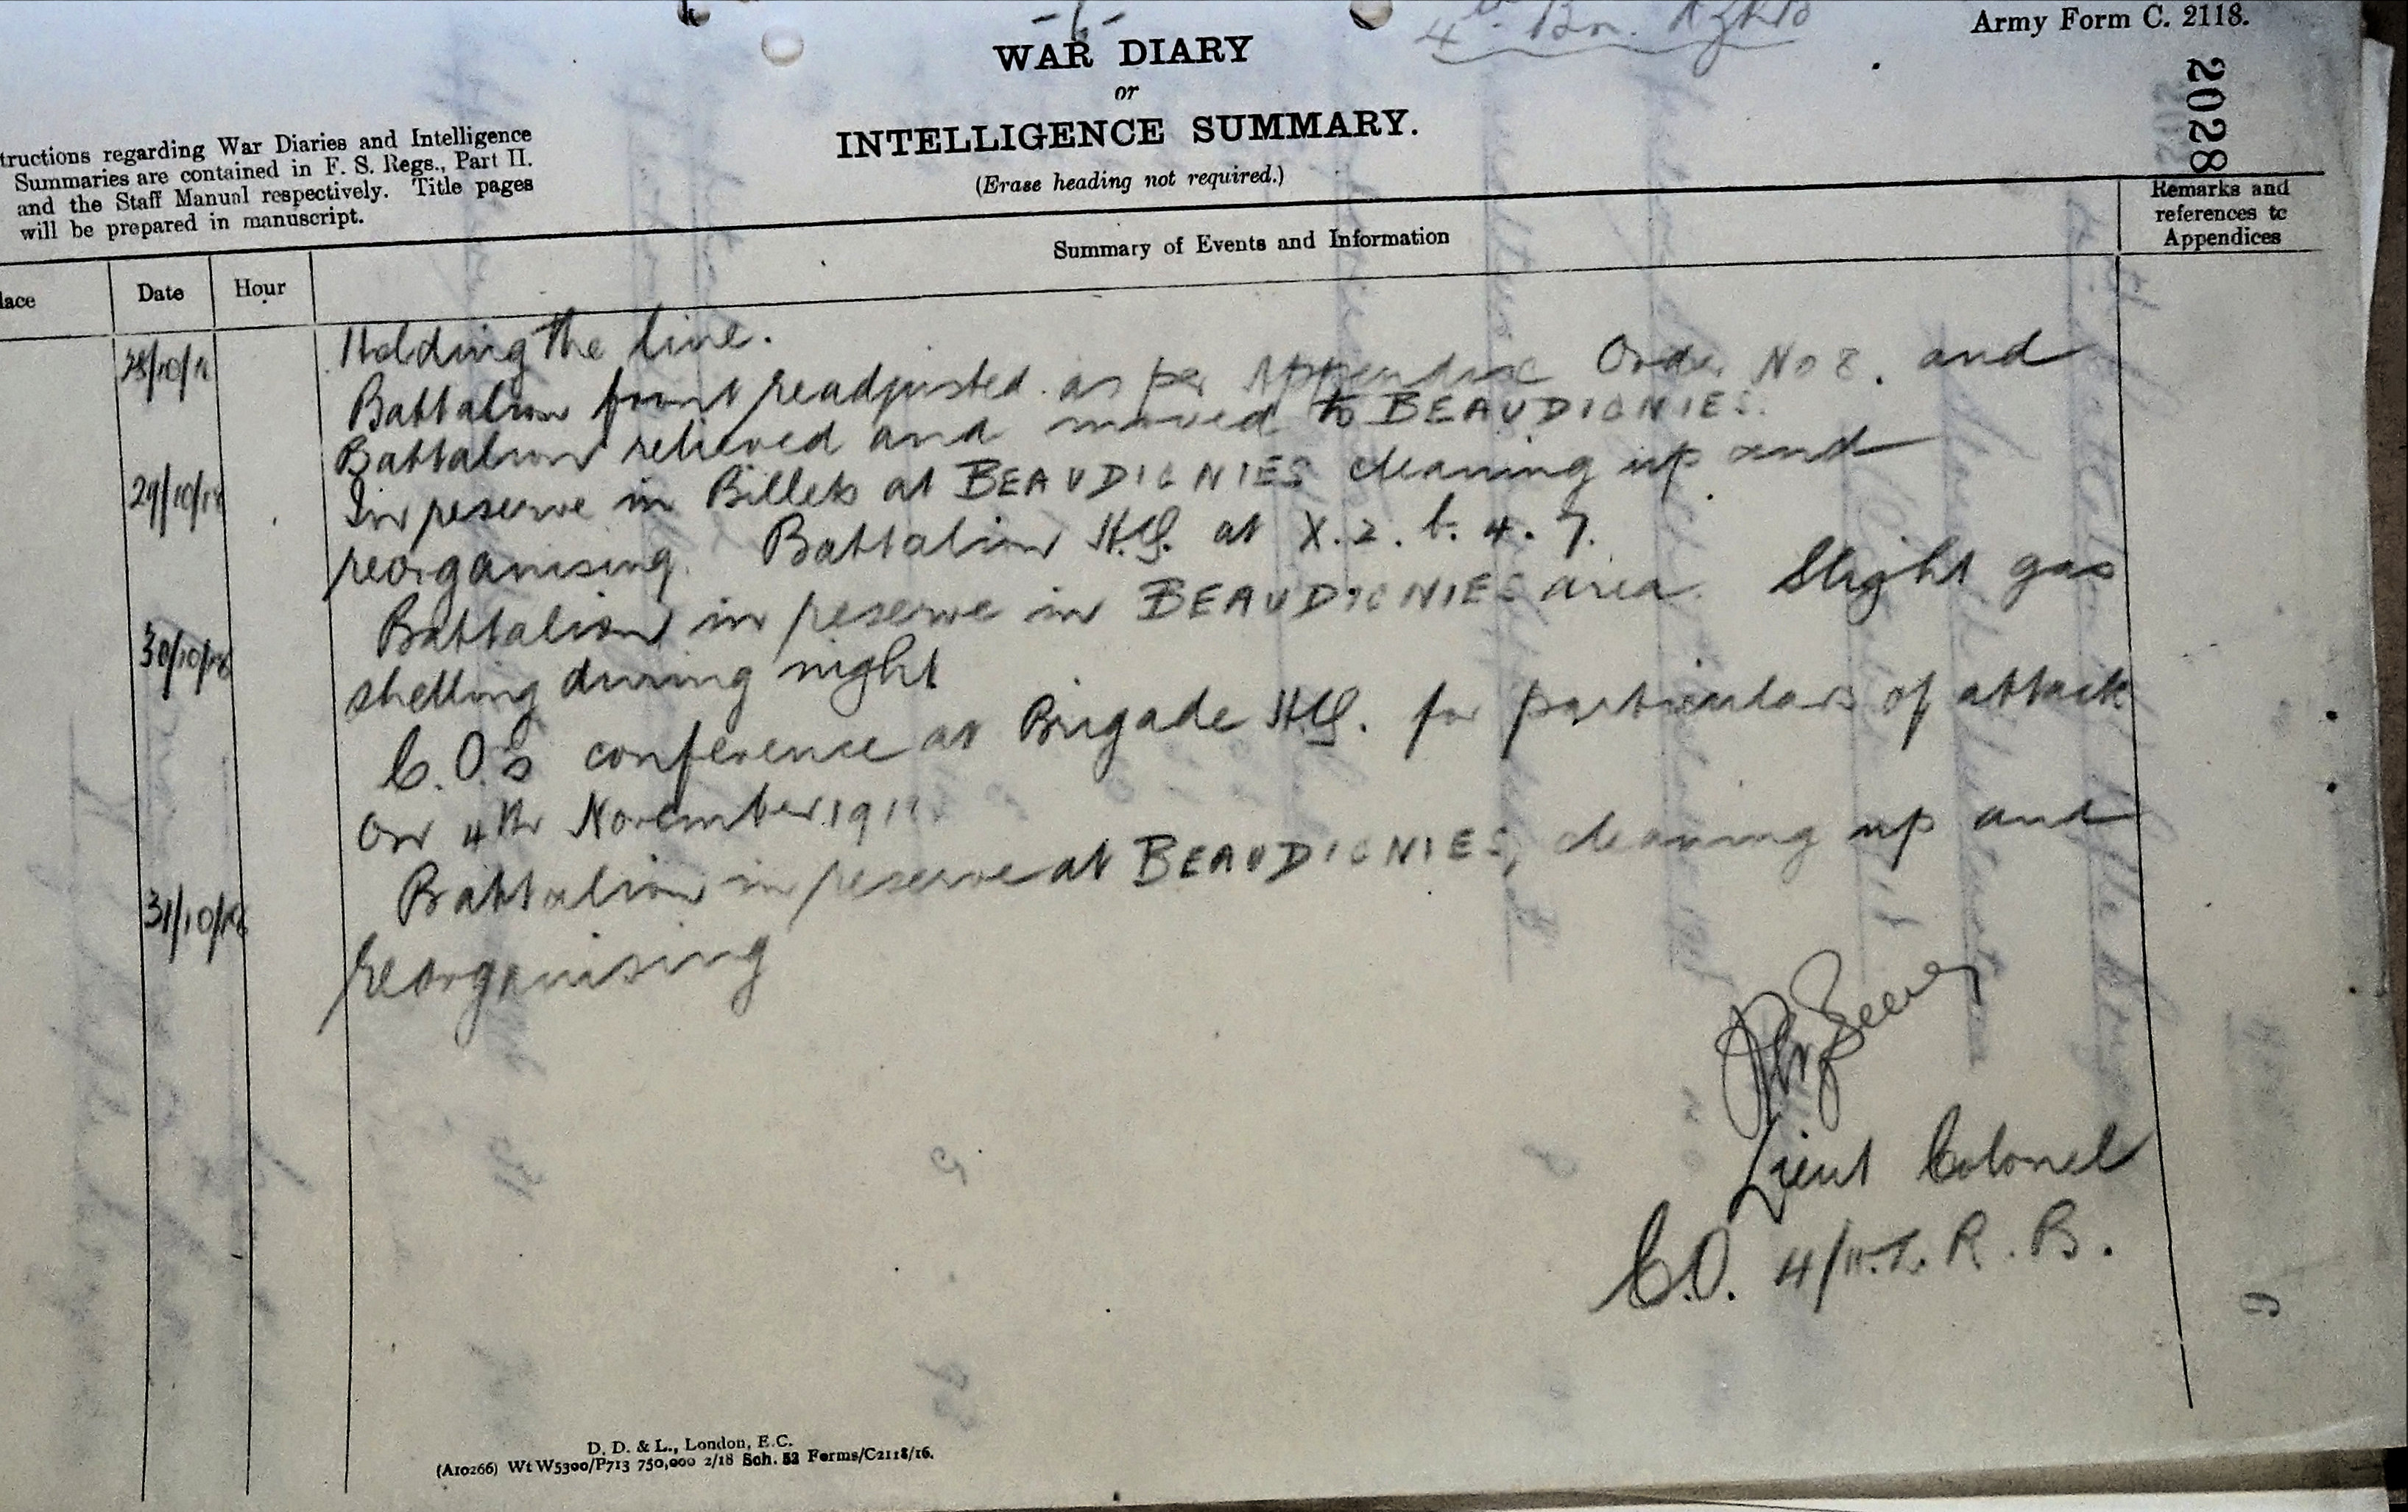 - 6 -
4th Bn.
Army Form C. 2118.
WAR DIARY
or
INTELLIGENCE SUMMARY.
(Erase heading not required.)
2028
tructions regarding War Diaries and Intelligence
Summaries are contained in F. S. Regs., Part II.
and the Staff Manual respectively. Title pages
will be prepared in manuscript.
Remarks and
references to
Appendices
Summary of Events and Information
lace Date Hour
28/10/1 Holding the line.
Battalion front readjusted as per Appendix Order No 8. and
Battalion relieved and moved to BEAUDIGNIES.
29/10/18 In reserve in Billets at BEAUDIGNIES cleaning up and
reorganising. Battalion H.Q. at X.2.b.4.7.
30/10/18 Battalion in reserve in BEAUDIGNIES area. Slight gas
shelling during night
C.O.'s conference at Brigade H.Q. for particulars of attack
on 4th November 191
31/10/18 Battalion in reserve at BEAUDIGNIES, cleaning up and
reorganising
Lieut Colonel
C.O. 4/N.Z.R.B.
D. D. & L., London, E.C.
(A10266) Wt W5300/P713 750,000 2/18 Sch. 52 Forms/C2118/16.